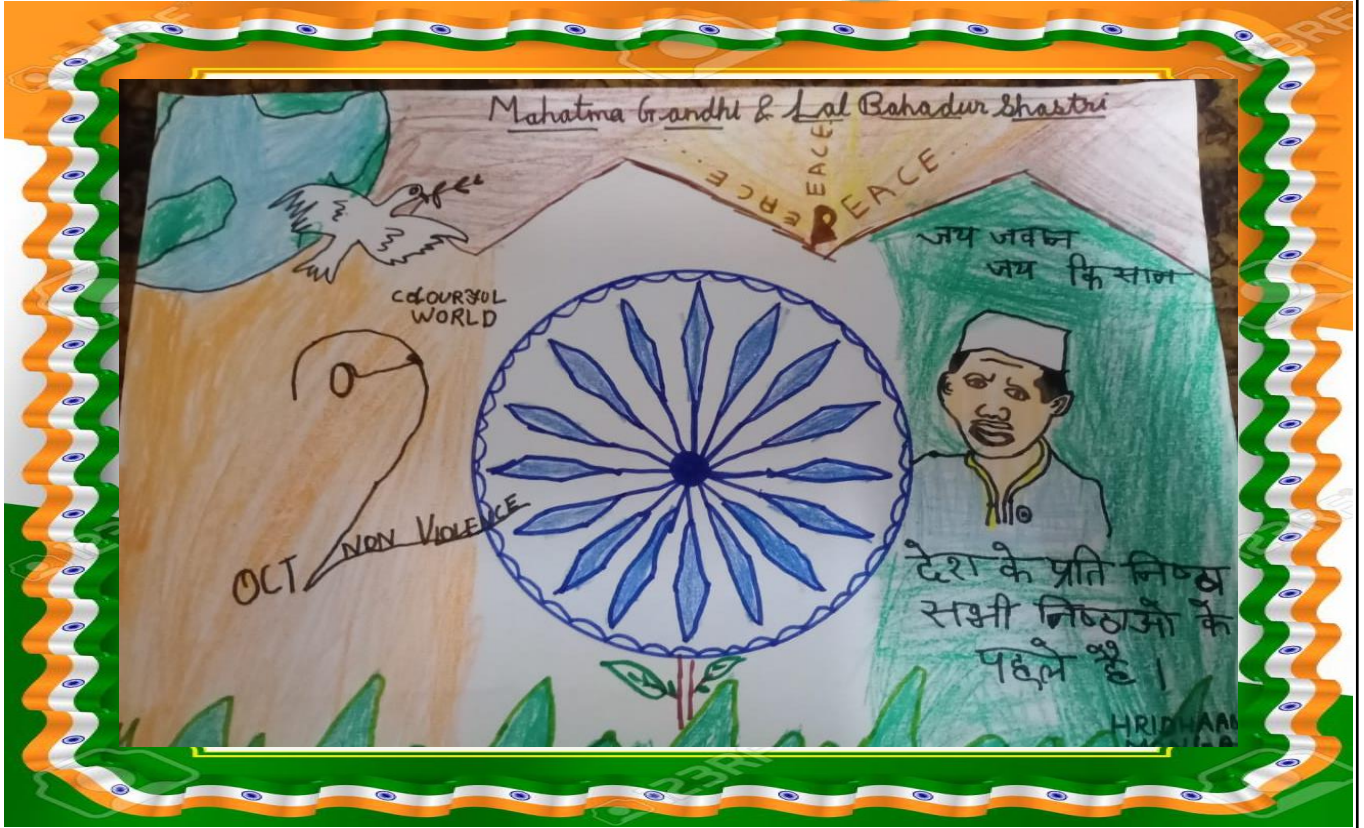 Mahatma Gandhi & Lal Bahadur Shastri
PEACE
PEACE
PEACE
जय जवान
जय किसान
COLOURFUL
WORLD
OCT
2
NON VIOLENCE
देश के प्रति निष्ठा
सभी निष्ठाओ के
पहले है।
HRIDHAAN
123RF